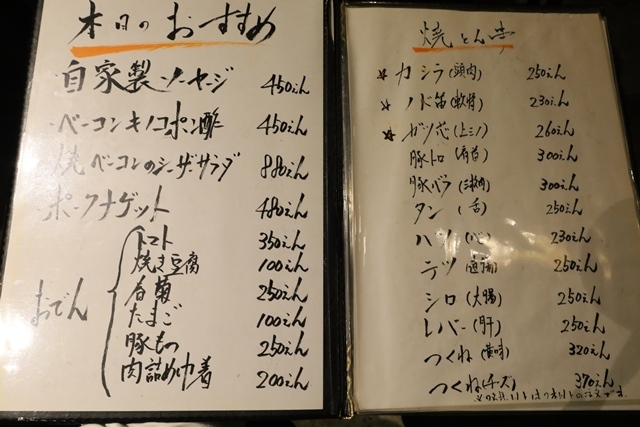 本日のおすすめ
自家製ソーセージ 450えん
ベーコンキノコポン酢 450えん
焼ベーコンのシーザーサラダ 880えん
ポークナゲット 480えん
おでん
トマト 350えん
焼き豆腐 100えん
春菊 250えん
たまご 100えん
豚もつ 250えん
肉詰め巾着 200えん
焼とん串
☆ カシラ(頭肉) 250えん
☆ ノド笛(軟骨) 230えん
☆ ガツ芯(上ミノ) 260えん
豚トロ 300えん
豚バラ 300えん
タン(舌) 250えん
ハツ(心) 230えん
テツ(直腸) 250えん
シロ(大腸) 250えん
レバー(肝) 250えん
つくね(黄味) 320えん
つくね(チーズ) 370えん